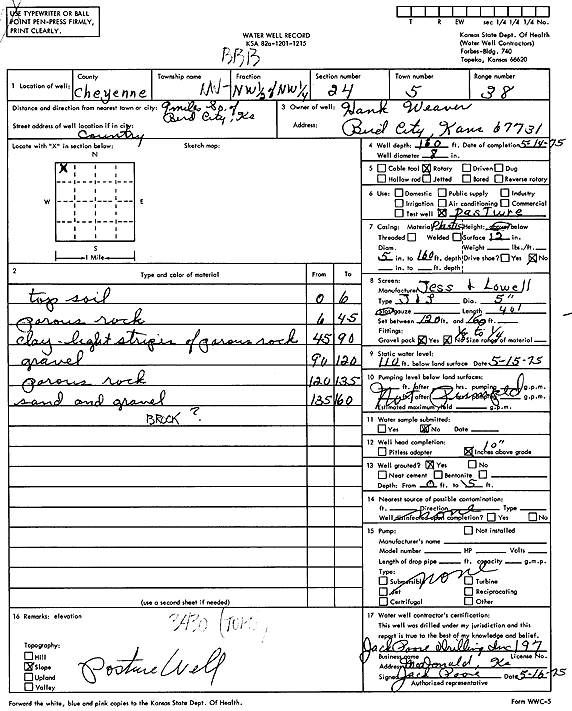 USE TYPEWRITER OR BALL
POINT PEN-PRESS FIRMLY,
PRINT CLEARLY.
WATER WELL RECORD
KSA 82a-1201-1215
BBB
T R EW sec 1/4 1/4 1/4 No.
Kansas State Dept. Of Health
(Water Well Contractors)
Forbes-Bldg. 740
Topeka, Kansas 66620
1 Location of well: County Cheyenne Township name Fraction NW 1/2 of NW 1/4 Section number 24 Town number 5 Range number 38
Distance and direction from nearest town or city: 9 miles So. of Bird City, Ks
Street address of well location if in city: Country
3 Owner of well: Hank Weaver
Address: Bird City, Kans 67731
Locate with "X" in section below: Sketch map:
N
X
W E
S
1 Mile
4 Well depth: 160 ft. Date of completion 5-14-75
Well diameter 8 in.
5 Cable tool X Rotary Driven Dug
Hollow rod Jetted Bored Reverse rotary
6 Use: Domestic Public supply Industry
Irrigation Air conditioning Commercial
Test well X pasture
7 Casing: Material Plastic Height: Above/below
Threaded Welded Surface 12 in.
Diam. Weight lbs./ft.
5 in. to 160 ft. depth Drive shoe? Yes X No
in. to ft. depth
2 Type and color of material From To
top soil 0 6
porous rock 6 45
clay - light stripes of porous rock 45 90
gravel 90 120
porous rock 120 135
sand and gravel 135 160
BROCK?
(use a second sheet if needed)
8 Screen:
Manufacturer Jess & Lowell
Type J & L Dia. 5"
Slot/gauze Length 40'
Set between 120 ft. and 160 ft.
Fittings:
Gravel pack X Yes X No Size range of material 1/8 to 1/4
9 Static water level:
110 ft. below land surface Date 5-15-75
10 Pumping level below land surfaces:
ft. after hrs. pumping g.p.m.
ft. after hrs. pumping g.p.m.
Not Pumped
Estimated maximum yield g.p.m.
11 Water sample submitted:
Yes X No Date
12 Well head completion:
Pitless adapter X 10" Inches above grade
13 Well grouted? X Yes No
Neat cement Bentonite
Depth: From 0 ft. to 5 ft.
14 Nearest source of possible contamination:
ft. Direction none Type
Well disinfected upon completion? Yes No
15 Pump: Not installed
Manufacturer's name
Model number HP Volts
Length of drop pipe ft. capacity g.m.p.
Type: none
Submersible Turbine
Jet Reciprocating
Centrifugal Other
16 Remarks: elevation
3430 (TOPO)
Topography:
Hill
X Slope
Upland
Valley
Pasture Well
17 Water well contractor's certification:
This well was drilled under my jurisdiction and this
report is true to the best of my knowledge and belief.
Jack Poore Drilling Inc 197
Business name License No.
Address McDonald, Ks
Signed Jack Poore Date 5-16-75
Authorized representative
Forward the white, blue and pink copies to the Kansas State Dept. Of Health.
Form WWC-5